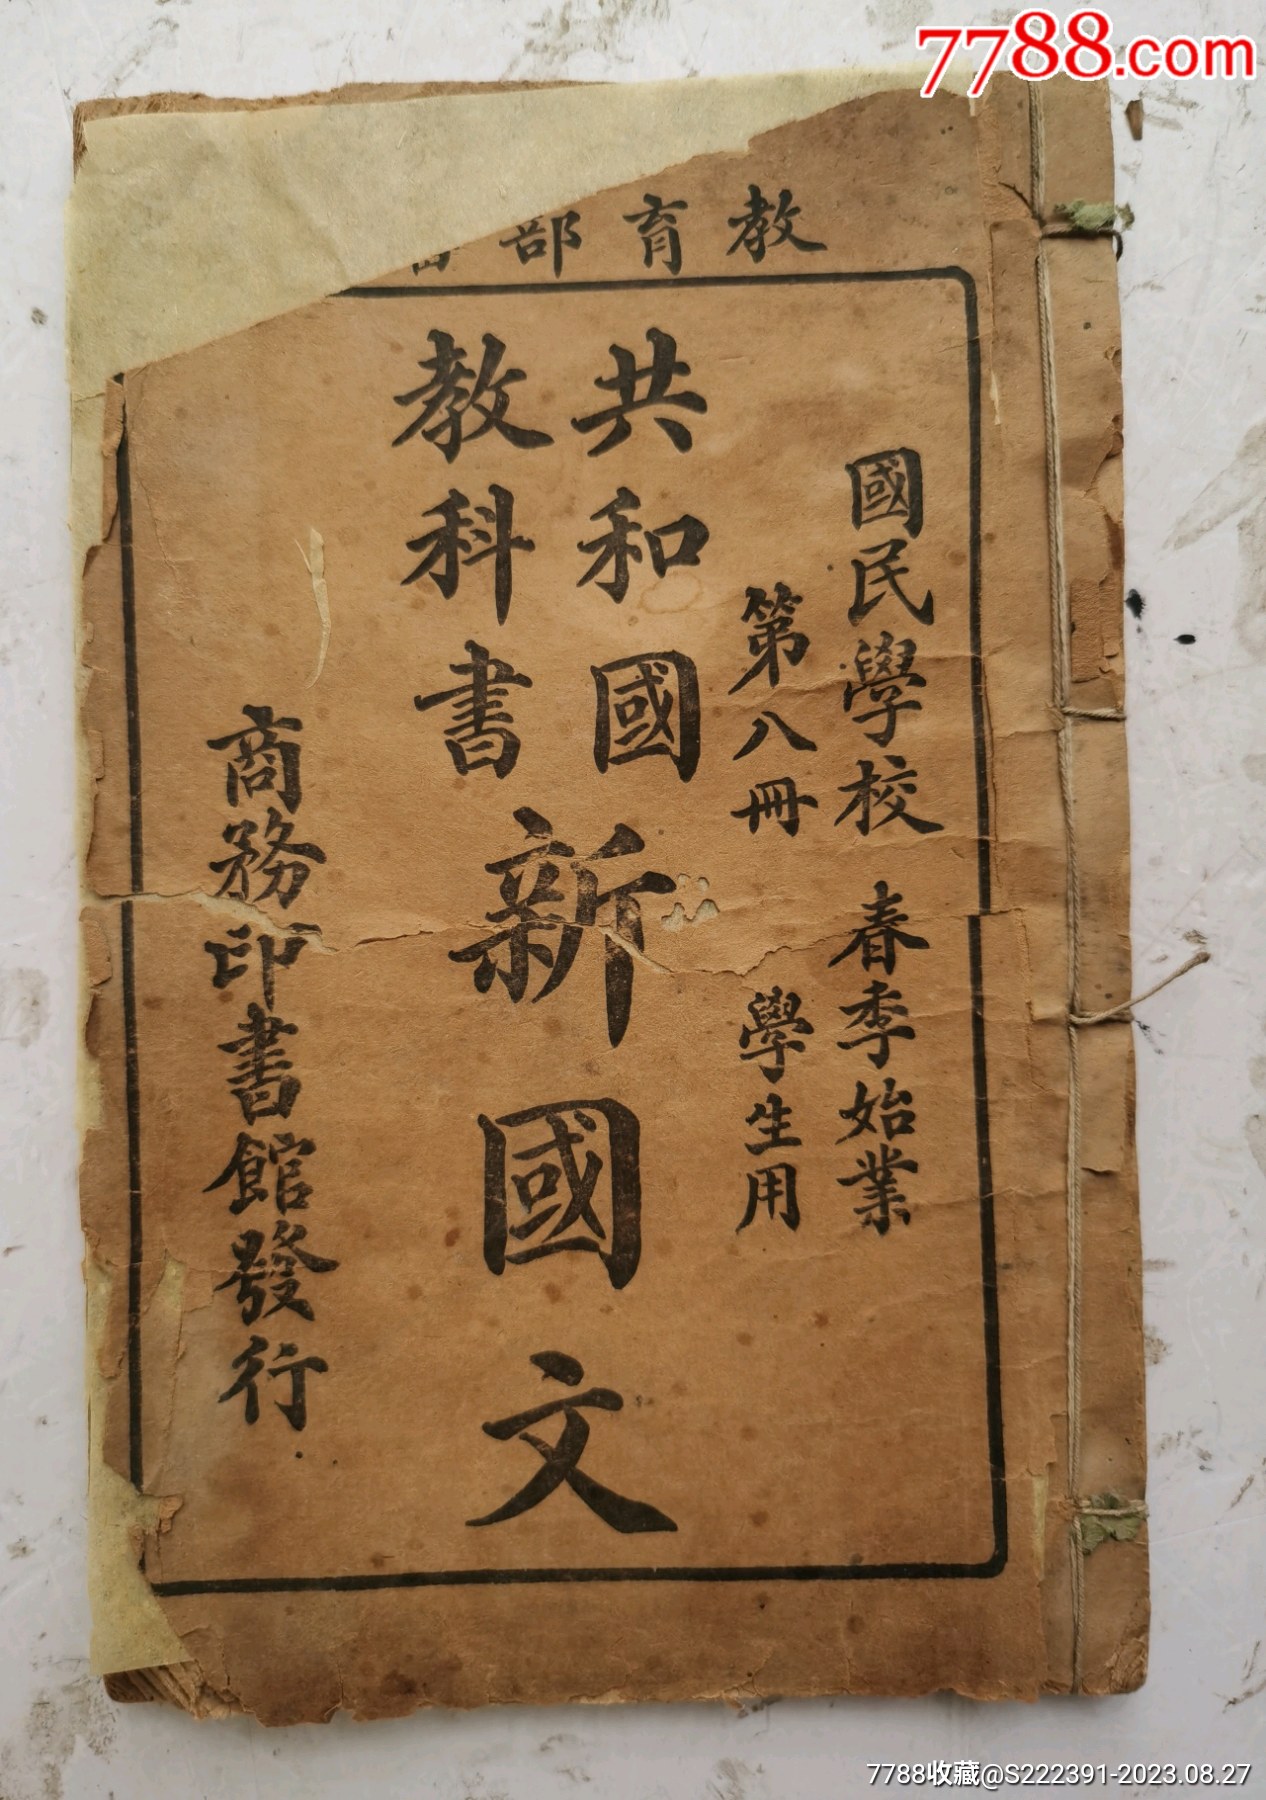 7788.com
教育部
國民學校 春季始業
第八冊 學生用
共和國
教科書
新國文
商務印書館發行
7788收藏@S222391-2023.08.27